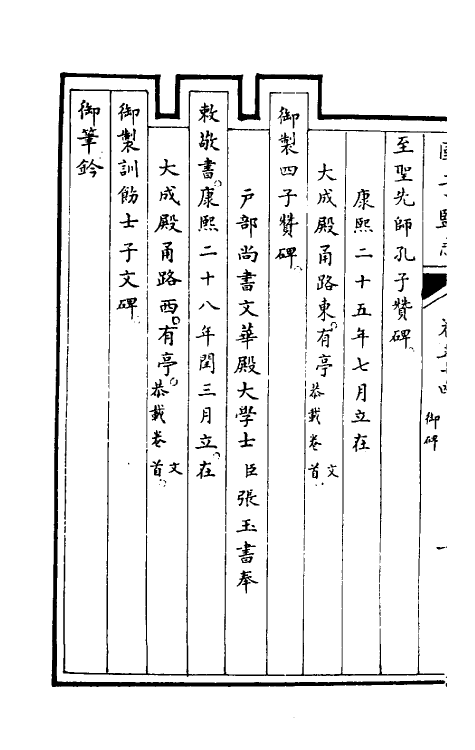 至聖先師孔子贊碑。
康熙二十五年七月立在
大成殿甬路東。有亭 文恭載卷首。
御製四子贊碑。
戶部尚書文華殿大學士臣張玉書奉
敕敬書。康熙二十八年閏三月立。在
大成殿甬路西。有亭。文恭載卷首。
御製訓飭士子文碑。
御筆鈐
御碑
一